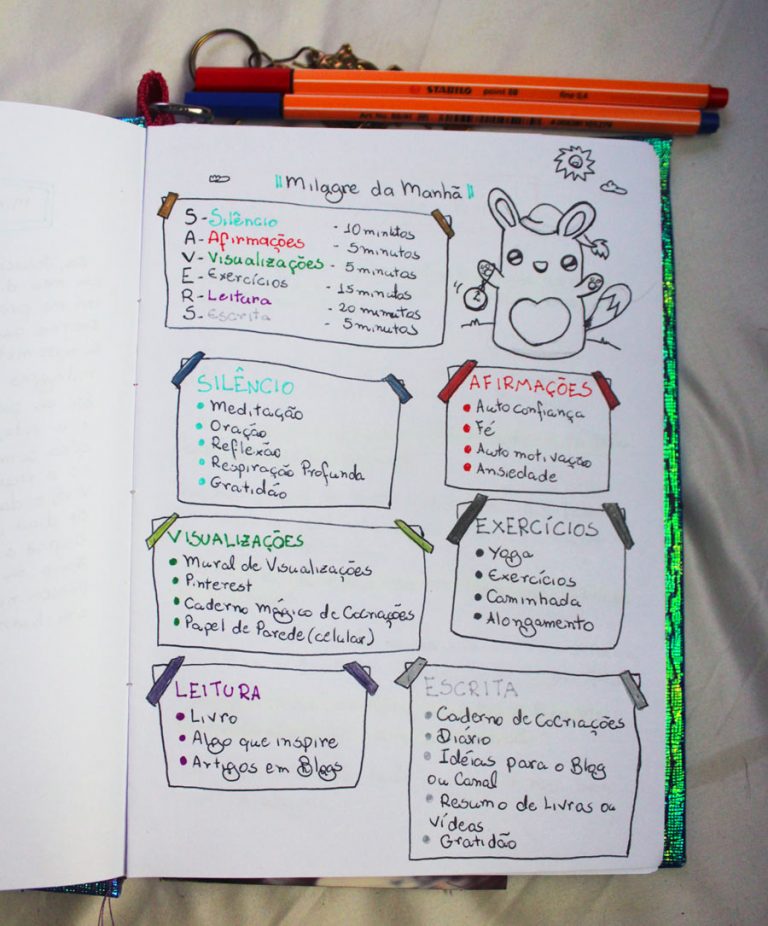 STABILO point 88 fine 0,4
Milagre da Manhã
S - Silêncio - 10 minutos
A - Afirmações - 5 minutos
V - Visualizações - 5 minutos
E - Exercícios - 15 minutos
R - Leitura - 20 minutos
S - Escrita - 5 minutos
SILÊNCIO
• Meditação
• Oração
• Reflexão
• Respiração Profunda
• Gratidão
AFIRMAÇÕES
• Auto confiança
• Fé
• Auto motivação
• Ansiedade
VISUALIZAÇÕES
• Mural de Visualizações
• Pinterest
• Caderno Mágico de Cocriações
• Papel de Parede (celular)
EXERCÍCIOS
• Yoga
• Exercícios
• Caminhada
• Alongamento
LEITURA
• Livro
• Algo que inspire
• Artigos em Blogs
ESCRITA
• Caderno de CoCriações
• Diário
• Idéias para o Blog
ou Canal
• Resumo de Livros ou
Vídeos
• Gratidão